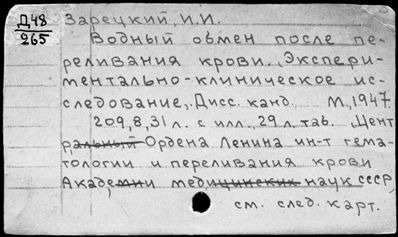 Д48
265
Зарецкий, И.И.
Водный обмен после пе-
реливания крови. Экспери-
ментально-клиническое ис-
следование,. Дисс. канд. М., 1947.
209, 8, 31 л. с илл., 29 л. таб. Цент
ральный Ордена Ленина ин-т гема-
тологии и переливания крови
Академии медицинских наук СССР
см. след. карт.